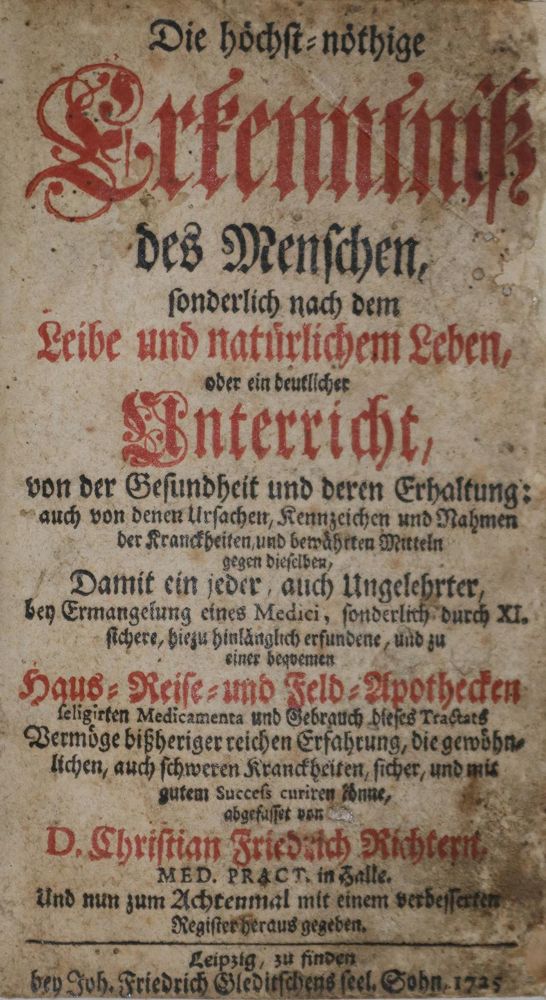 Die höchst-nöthige
Erkenntniß
des Menschen,
sonderlich nach dem
Leibe und natürlichem Leben,
oder ein deutlicher
Unterricht,
von der Gesundheit und deren Erhaltung:
auch von denen Ursachen, Kennzeichen und Nahmen
der Kranckheiten, und bewährten Mitteln
gegen dieselben,
Damit ein jeder, auch Ungelehrter,
bey Ermangelung eines Medici, sonderlich durch XI.
sichere, hiezu hinlänglich erfundene, und zu
einer beqvemen
Haus-Reise-und Feld-Apothecken
seligirten Medicamenta und Gebrauch dieses Tractats
Vermöge bißheriger reichen Erfahrung, die gewöhn-
lichen, auch schweren Kranckheiten, sicher, und mit
gutem Success curiren könne,
abgefasset von
D. Christian Friedrich Richtern.
MED. PRACT. in Halle.
Und nun zum Achtenmal mit einem verbesserten
Register heraus gegeben.
Leipzig, zu finden
bey Joh. Friedrich Gleditschens seel. Sohn. 1725